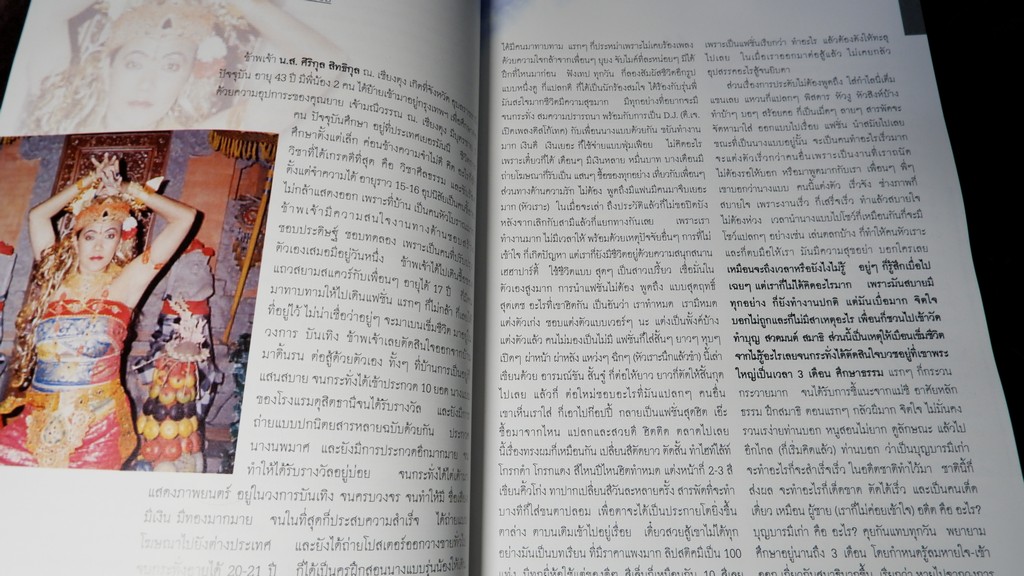 ข้าพเจ้า น.ส. ศิริกุล สิทธิกุล ณ. เชียงตุง เกิดที่จังหวัด
ปัจจุบัน อายุ 43 ปี มีพี่น้อง 2 คน ได้ย้ายเข้ามาอยู่กรุงเทพฯ
ด้วยความอุปการะของคุณยาย เจ้ามณีวรรณ ณ. เชียงตุง
คน ปัจจุบันศึกษา อยู่ที่ประเทศเยอรมันปี
ศึกษาตั้งแต่เล็ก ค่อนข้างความจำไม่ดี
วิชาที่ได้เกรดดีที่สุด คือ วิชาศีลธรรม
ตั้งแต่จำความได้ อายุราว 15-16
ไม่กล้าแสดงออก เพราะที่บ้าน เป็นคนหัวโบราณ
ข้าพเจ้ามีความสนใจงานทางด้าน
ชอบประดิษฐ์ ชอบทดลอง เพราะเป็นคน
ตัวเองเสมอมีอยู่วันหนึ่ง ข้าพเจ้าได้ไปเดิน
แถวสยามสแควร์กับเพื่อนๆ อายุได้ 17 ปี
มาทาบทามให้ไปเดินแฟชั่น แรกๆ ก็ไม่กล้า
ที่อยู่ไว้ ไม่น่าเชื่อว่าอยู่ๆ จะมาเบนเข็มชีวิต
วงการ บันเทิง ข้าพเจ้าเลยตัดสินใจออกจากบ้าน
มาดิ้นรน ต่อสู้ด้วยตัวเอง ทั้งๆ ที่บ้านการเป็นอยู่
แสนสบาย จนกระทั่งได้เข้าประกวด 10 ยอด
ของโรงแรมดุสิตธานีจนได้รับรางวัล และยังมี
ถ่ายแบบปกนิตยสารหลายฉบับด้วยกัน
นางนพมาศ และยังมีการประกวดอีกมากมาย
ทำให้ได้รับรางวัลอยู่บ่อย จนกระทั่งได้
แสดงภาพยนตร์ อยู่ในวงการบันเทิง จนครบวงจร จนทำให้มี
มีเงิน มีทองมากมาย จนในที่สุดก็ประสบความสำเร็จ ได้ถ่าย
โฆษณาไปยังต่างประเทศ และยังได้ถ่ายโปสเตอร์ออกวางขายทั่วไป
จนกระทั่งอายุได้ 20-21 ปี ก็ได้เป็นครูฝึกสอนนางแบบรุ่นน้องให้
ได้มีคนมาทาบทาม แรกๆ ก็ประหม่าเพราะไม่เคยร้องเพลง
ด้วยความใจกล้าจากเพื่อนๆ
ปีกที่ไหนมาก่อน ฟังเทป ทุกวัน ก็ลองสัมผัสชีวิตอีกรูป
แบบหนึ่งดู ก็แปลกดี ก็ได้เป็นนักร้องสมใจ ได้ร้องกับรุ่นพี่
มันสะใจมากชีวิตมีความสุขมาก มีทุกอย่างที่อยากจะมี
จนกระทั่ง สมความปรารถนา พร้อมกับการเป็น D.J. (ดี.เจ.
เปิดเพลงดิสโก้เทค) กับเพื่อนนางแบบด้วยกัน ขยันทำงาน
มาก เงินดี เงินเยอะ ก็ใช้จ่ายแบบฟุ่มเฟือย ไม่คิดอะไร
เพราะเดี๋ยวก็ได้ เดือนๆ มีเงินหลาย หมื่นบาท บางเดือนมี
ถ่ายโฆษณาก็รับเป็น แสนๆ ซื้อของทุกอย่าง เที่ยวกับเพื่อนๆ
ส่วนทางด้านความรัก ไม่ต้อง พูดถึงมีแฟนมีคนมาจีบเยอะ
มาก (หัวเราะ) ในเมื่อจะเล่า ถึงประวัติแล้วก็ไม่ขอปิดบัง
หลังจากเลิกกับสามีแล้วก็แยกทางกันเลย เพราะเรา
ทำงานมาก ไม่มีเวลาให้ พร้อมด้วยเหตุปัจจัยอื่นๆ การที่ไม่
เข้าใจ ก็เกิดปัญหา แต่เราก็ทำใจได้ อยู่ด้วยความสนุกสนาน
เฮฮาปาร์ตี้ ใช้ชีวิตแบบ สุดๆ เป็นสาวเปรี้ยว เชื่อมั่นใน
ตัวเองสูงมาก การนำแฟชั่นไม่ต้อง พูดถึง แบบสุดฤทธิ์
สุดเดช อะไรที่เขาฮิตกัน เป็นอันว่า เราทำหมด เรามีหมด
แต่งตัวเก่ง ชอบแต่งตัวแบบเวอร์ๆ นะ แต่งเป็นพังค์บ้าง
แต่งตัวแล้ว คนไม่มองเป็นไม่มี แฟชั่นก็ใส่สั้นๆ ยาวๆ หุบๆ
เปิดๆ ผ่าหน้า ผ่าหลัง แหว่งๆ ฉีกๆ (หัวเราะนึกแล้วขำ) นี้เล่า
เขียนด้วย อารมณ์ขัน สั้นจู๋ ก็ต่อให้ยาว ยาวก็ตัดให้สั้นกุด
ไปเลย แล้วก็ ต่อใหม่ชอบอะไรที่มันแปลกๆ คนอื่น
เขาเห็นเราใส่ ก็เอาไปก๊อปปี้ กลายเป็นแฟชั่นสุดฮิต เอ๊ะ
ซื้อมาจากไหน แปลกและสวยดี ฮิตติด ตลาดไปเลย
นี้เรื่องทรงผมก็เหมือนกัน เปลี่ยนสีตัดยาว ตัดสั้น ทำไฮไล้ท์
โกรกดำ โกรกแดง สีไหนปีไหนฮิตทำหมด แต่งหน้าที่ 2-3 สี
เขียนคิ้วโก่ง ทาปากเปลี่ยนสีวันละหลายครั้ง สารพัดที่จะทำ
บางทีก็ใส่ขนตาปลอม เพื่อตาจะได้เป็นประกายโตยิ่งขึ้น
ตาล่าง ตาบนเติมเข้าไปอยู่เรื่อย เดี๋ยวสวยสู้เขาไม่ได้ทุก
อย่างมันเป็นบทเรียน ที่มีราคาแพงมาก ลิปสติคมีเป็น 100
แท่ง
เพราะเป็นแฟชั่นเรียกว่า ทำอะไร แล้วต้องดังให้ทะลุ
ไปเลย ในเมื่อเราออกมาต่อสู้แล้ว ไม่เคยกลัว
อุปสรรคอะไรสู้จนยิบตา
ส่วนเรื่องการประดับไม่ต้องพูดถึง ใส่กำไลนี้เต็ม
แขนเลย แหวนก็แปลกๆ พิสดาร หัวงู หัวสิงห์บ้าง
ทำบ้าๆ บอๆ สร้อยคอ ก็เป็นเม็ดๆ
จัดหามาใส่ ออกแบบไปเรื่อย แฟชั่น นำสมัยไปเลย
ขณะที่เป็นนางแบบอยู่นั้น จะเป็นคนทำอะไรเร็วมาก
จะแต่งตัวเร็วกว่าคนอื่นเพราะเป็นงานที่เราถนัด
ไม่ต้องรอให้บอก หรือมาพูดมากกับเรา เพื่อนๆ พี่ๆ
เขาบอกว่านางแบบ คนนี้แต่งตัว เร็วจัง ช่างภาพก็
สบายใจ เพราะงานเร็ว ก็เสร็จเร็ว ทำแล้วสบายใจ
ไม่ต้องห่วง เวลานำนางแบบไปโชว์ก็เหมือนกันก็จะมี
โชว์แปลกๆ อย่างเช่น เล่นตลกบ้าง ก็ทำให้คนหัวเราะ
และก็ตบมือให้เรา มันมีความสุขอย่า บอกใครเลย
เหมือนจะถึงเวลาหรือยังไงไม่รู้ อยู่ๆ ก็รู้สึกเบื่อไป
เฉยๆ แต่เราก็ไม่ได้คิดอะไรมาก เพราะมันสบายมี
ทุกอย่าง ก็ยังทำงานปกติ แต่มันเบื่อมาก จิตใจ
บอกไม่ถูกและก็ไม่มีสาเหตุอะไร เพื่อนก็ชวนไปเข้าวัด
ทำบุญ สวดมนต์ สมาธิ ส่วนนี้เป็นเหตุให้เบี่ยนเข็มชีวิต
จากไม่รู้อะไรเลยจนกระทั่งได้ตัดสินใจบวชอยู่ที่เขาพระ
ใหญ่เป็นเวลา 3 เดือน ศึกษาธรรม แรกๆ ก็กระวน
กระวายมาก จนได้รับการชี้แนะจากแม่ชี อาศัยหลัก
ธรรม ฝึกสมาธิ ตอนแรกๆ กลัวผีมาก จิตใจ ไม่มั่นคง
รวนเรง่าย ท่านบอก หนูสอนไม่ยาก ดูลักษณะ แล้วไป
อีกไกล (ก็เริ่มคิดแล้ว) ท่านบอก ว่าเป็นบุญบารมีเก่า
จะทำอะไรก็จะสำเร็จเร็ว ในอดีตชาติทำไว้มา ชาตินี้ก็
ส่งผล จะทำอะไรก็เด็ดขาด ตัดได้เร็ว และเป็นคนเด็ด
เดี่ยว เหมือน ผู้ชาย (เราก็ไม่ค่อยเข้าใจ) อดีต คือ อะไร?
บุญบารมีเก่า คือ อะไร? คุยกันแทบทุกวัน พยายาม
ศึกษาอยู่นานถึง 3 เดือน โดยกำหนดรู้ลมหายใจ-เข้า